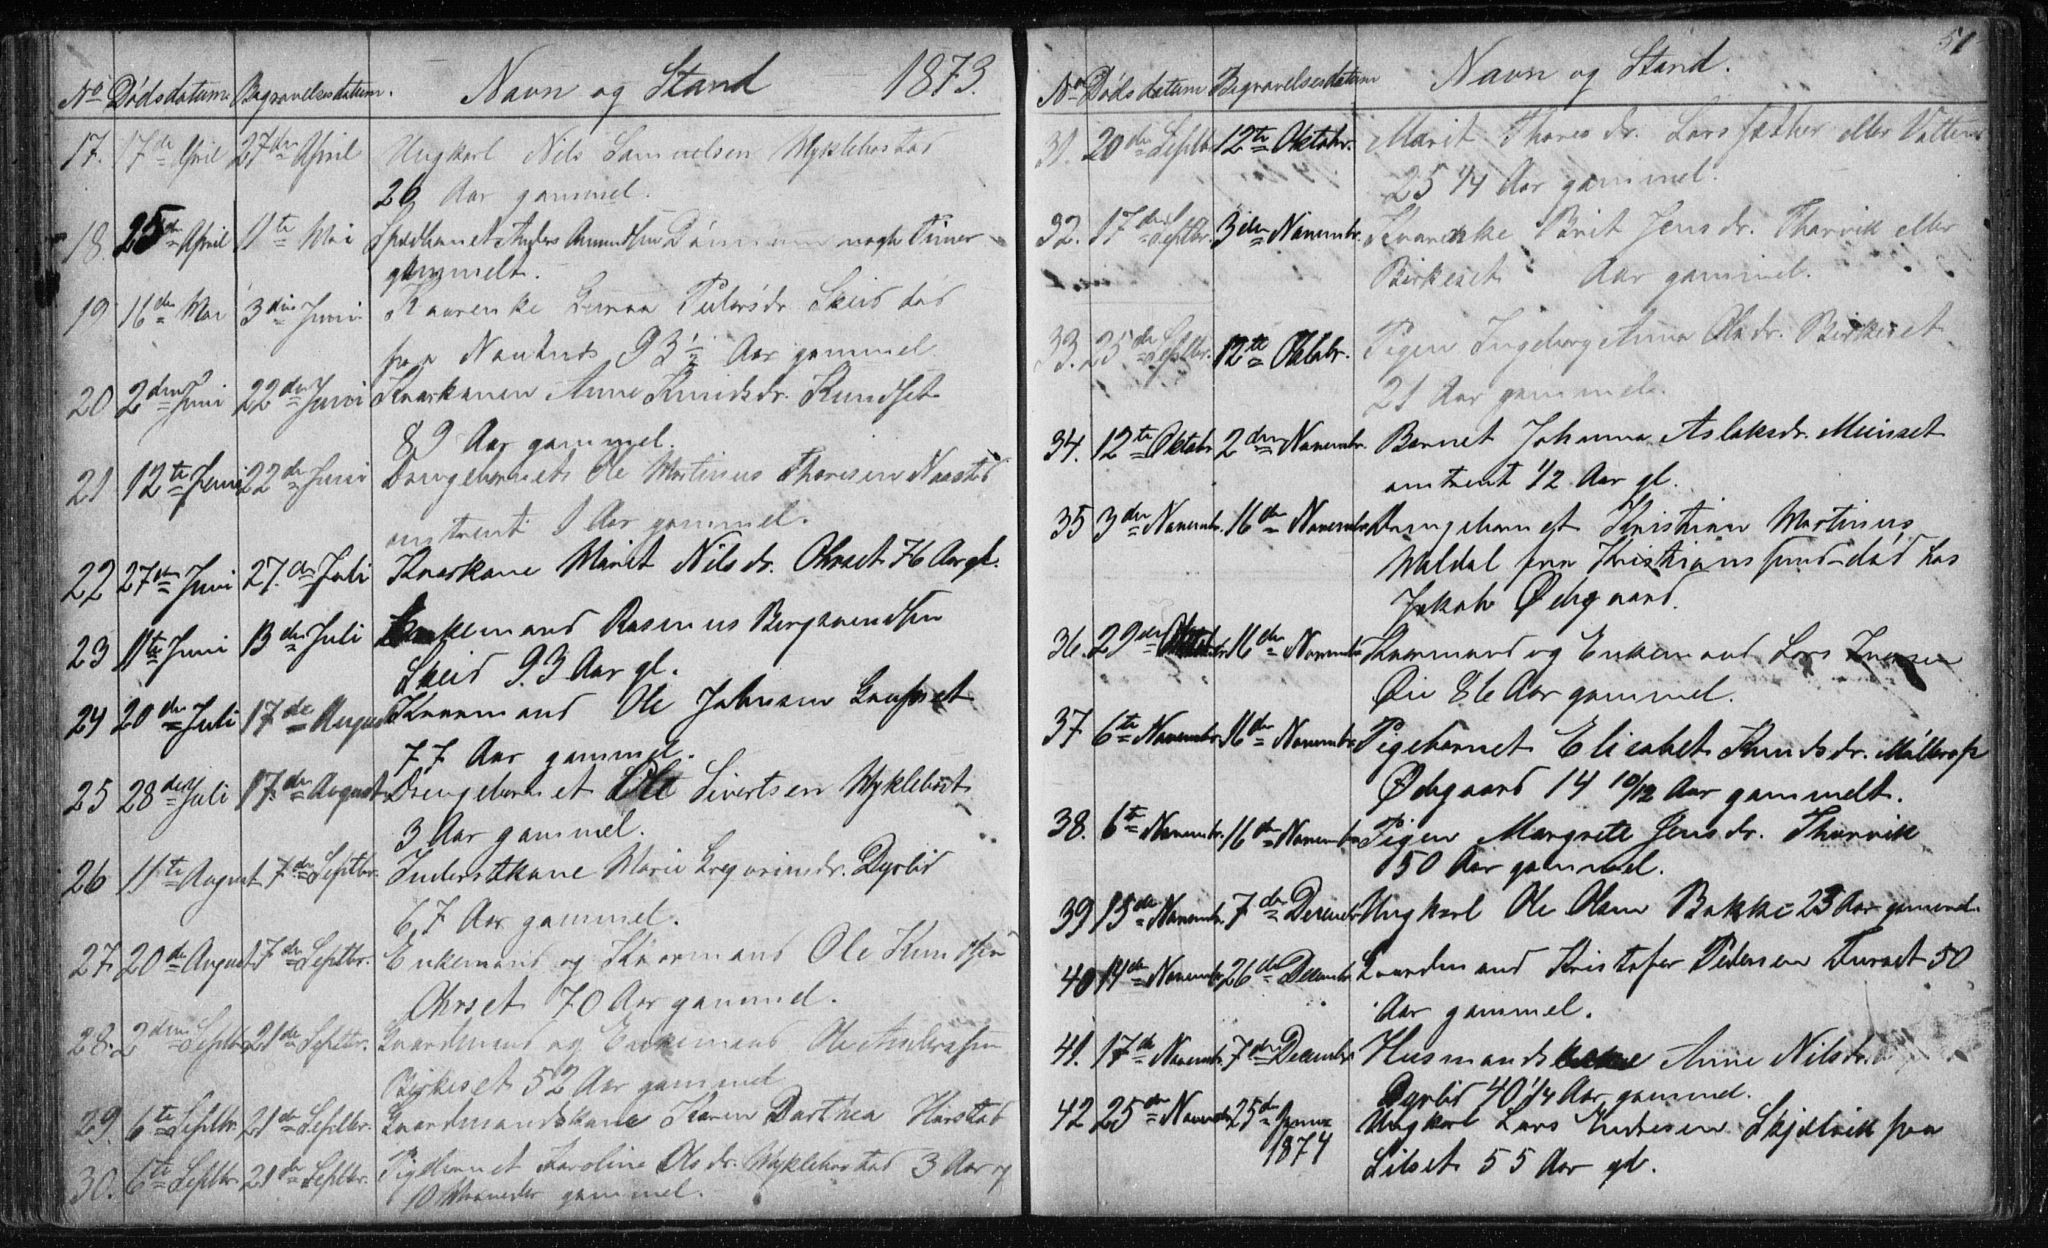 No Dödsdatum. Begravelsesdatum. Navn og Stand 1873.
17. 17de April 27de April Ungkarl Nils Samuelsen Myklebostad
26 Aar gammel.
18. 25de April 11te Mai Spædbarnet Anders Amundsen nogle Timer
gammelt.
19 16de Mai 3die Juni Kaarenke Pedersdr. Skeid død
paa 93 1/2 Aar gammel
20 2den Juni 22de Juni Kaarkonen Anne Knudsdr. Kundset
89 Aar gammel.
21 12te Juni 22de Juni Drengebarnet Ole Martinus Thoresen Naastad
omtrent 1 Aar gammel.
22 27de Juni 27. de Juli Kaarkone Marit Nilsdr. Ohrset 76 Aar gl.
23 11te Juni 13de Juli Enkemand Rasmus Bergsvendsen
Skeid 93 Aar gl.
24 20de Juli 17de August Kaarmand Ole Johnsen Gaupset
77 Aar gammel.
25 28de Juli 17de August Drengebarnet Ole Sivertsen Myklebost
3 Aar gammel.
26 11te August 7de Septbr. Inderstkone Marie Gregoriusdr. Dyrlid
67 Aar gammel.
27. 20de August 7de Septbr. Enkemand og Kaarmand Ole Knudsen
Ohrset 70 Aar gammel.
28. 2den Septbr. 21de Septbr. Gaardmand og Enkemand Ole Andersen
Birkeset 52 Aar gammel
29. 6te Septbr. 21de Septbr. Gaardmandskone Karen Dorthea Harstad
30. 6te Septbr. 21de Septbr. Pigebarnet Karoline Olsdr. Myklebostad 3 Aar og
10 Maaneder gammel.
51
No Dödsdatum Begravelsesdatum Navn og Stand.
31. 20de Septbr. 12te Oktobr. Marit Thoresdr. Larssæther eller
25 1/4 Aar gammel.
32. 17de Septbr. 3die Novembr. Kaarenke Brit Jensdr. Thorvik eller
Birkeset Aar gammel.
33. 25de Septbr. 12te Oktobr. Pigen Ingeborg Anna Olsdr. Birkeset
21 Aar gammel.
34. 12te Oktobr. 2den Novembr. Barnet Johanna Aslaksdr. Meisset
omtrent 1/2 Aar gl.
35 3die Novembr. 16de Novembr. Drengebarnet Kristian Martinus
Waldal fra Kristianssund død hos
Jakob Ødegaard.
36. 29de Oktobr. 16de Novembr. Kaarmand og Enkemand Lars Iversen
Øie 86 Aar gammel.
37 6te Novembr. 16de Novembr. Pigebarnet Elisabet Knudsdr.
Ødegaard 14 10/12 Aar gammelt.
38. 6te Novembr. 16de Novembr. Pigen Margrete Jensdr. Thorvik
50 Aar gammel.
39 15de Novembr. 7de Decembr. Ungkarl Ole Olsen Bakke 23 Aar gammel.
40 14de Novembr. 26de Decembr. Gaardmand Kristofer Pedersen Furset 50
Aar gammel.
41. 17de Novembr. 7de Decembr. Husmandskone Anne Nilsdr.
Dyrlid 40 1/4 Aar gammel.
42 25de Novembr. 25de Januar Ungkarl Lars Endresen Skjelvik paa
1874
Silset 55 Aar gl.